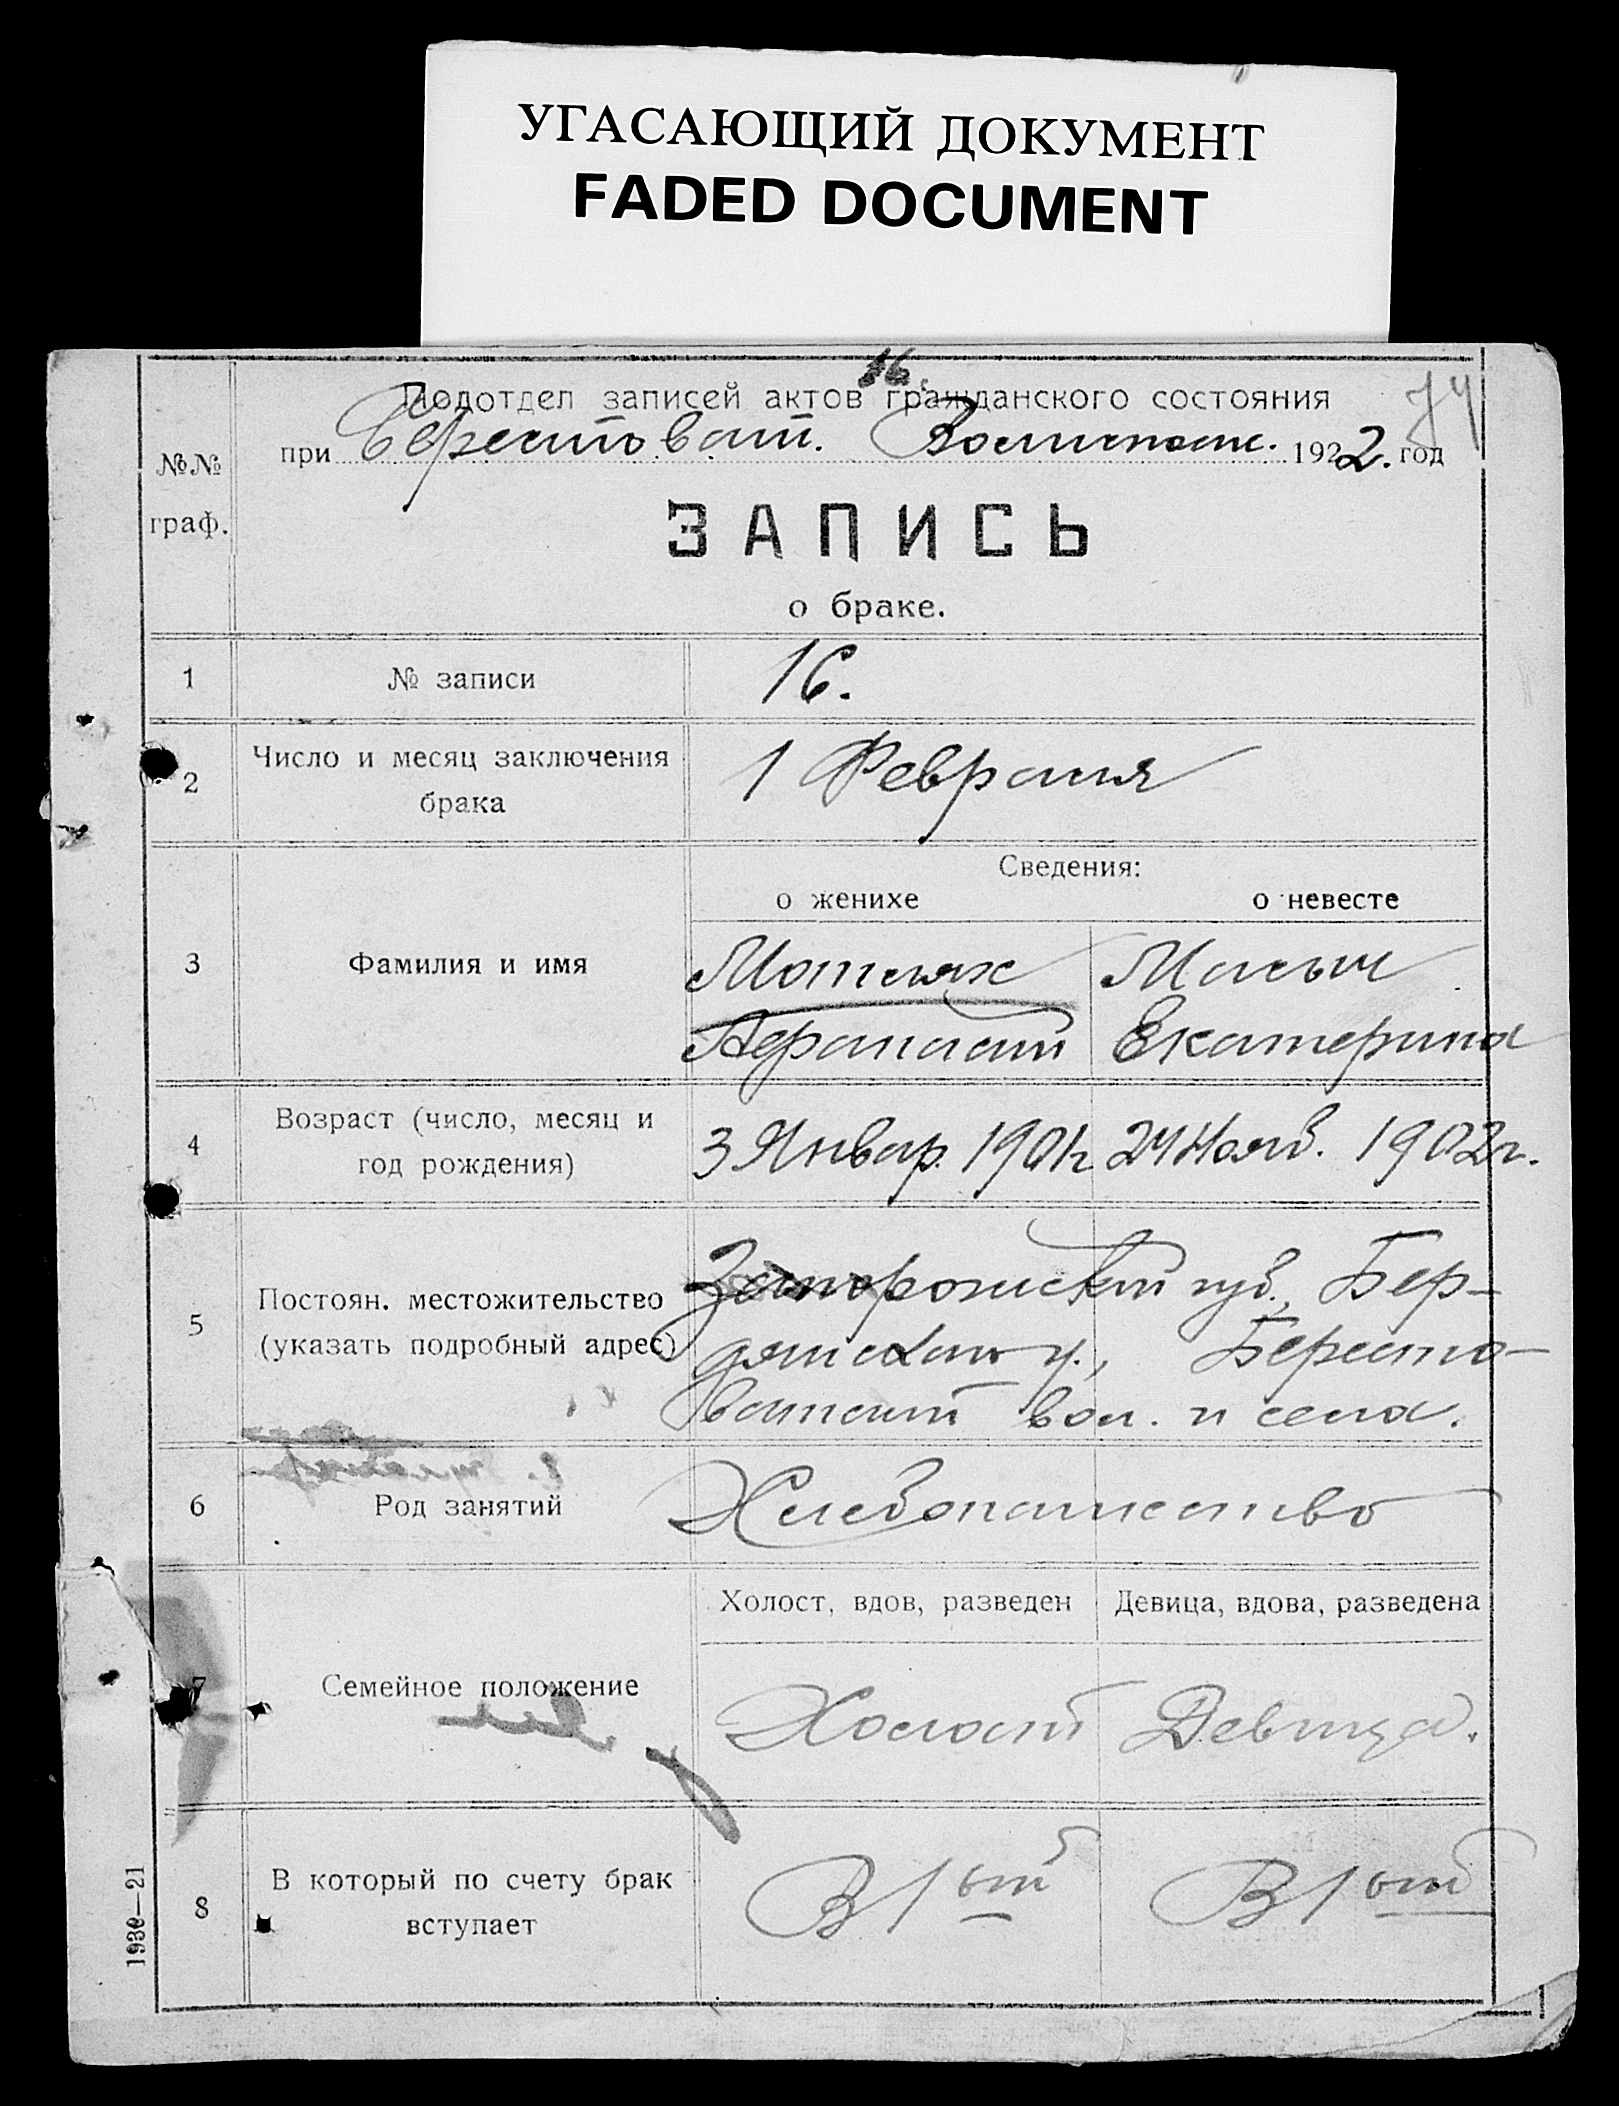 УГАСАЮЩИЙ ДОКУМЕНТ
FADED DOCUMENT
16.
74
Подотдел записей актов гражданского состояния
при Берестоват. Волисполк. 1922. год
№№
граф.
ЗАПИСЬ
о браке.
1 № записи 16.
2 Число и месяц заключения
брака
1 Февраля
Сведения:
о женихе о невесте
3 Фамилия и имя
Мотлях Малыш
Афанасий Екатерина
4 Возраст (число, месяц и
год рождения)
3 Январ. 1901г 24 Нояб. 1902г.
5 Постоян. местожительство
(указать подробный адрес)
Запорожской губ., Бер-
дянского у., Бересто-
ватской вол. и села.
6 Род занятий
Хлебопашество
Холост, вдов, разведен Девица, вдова, разведена
7 Семейное положение
Холост Девица.
8 В который по счету брак
вступает
В 1ый В 1ый
1930—21